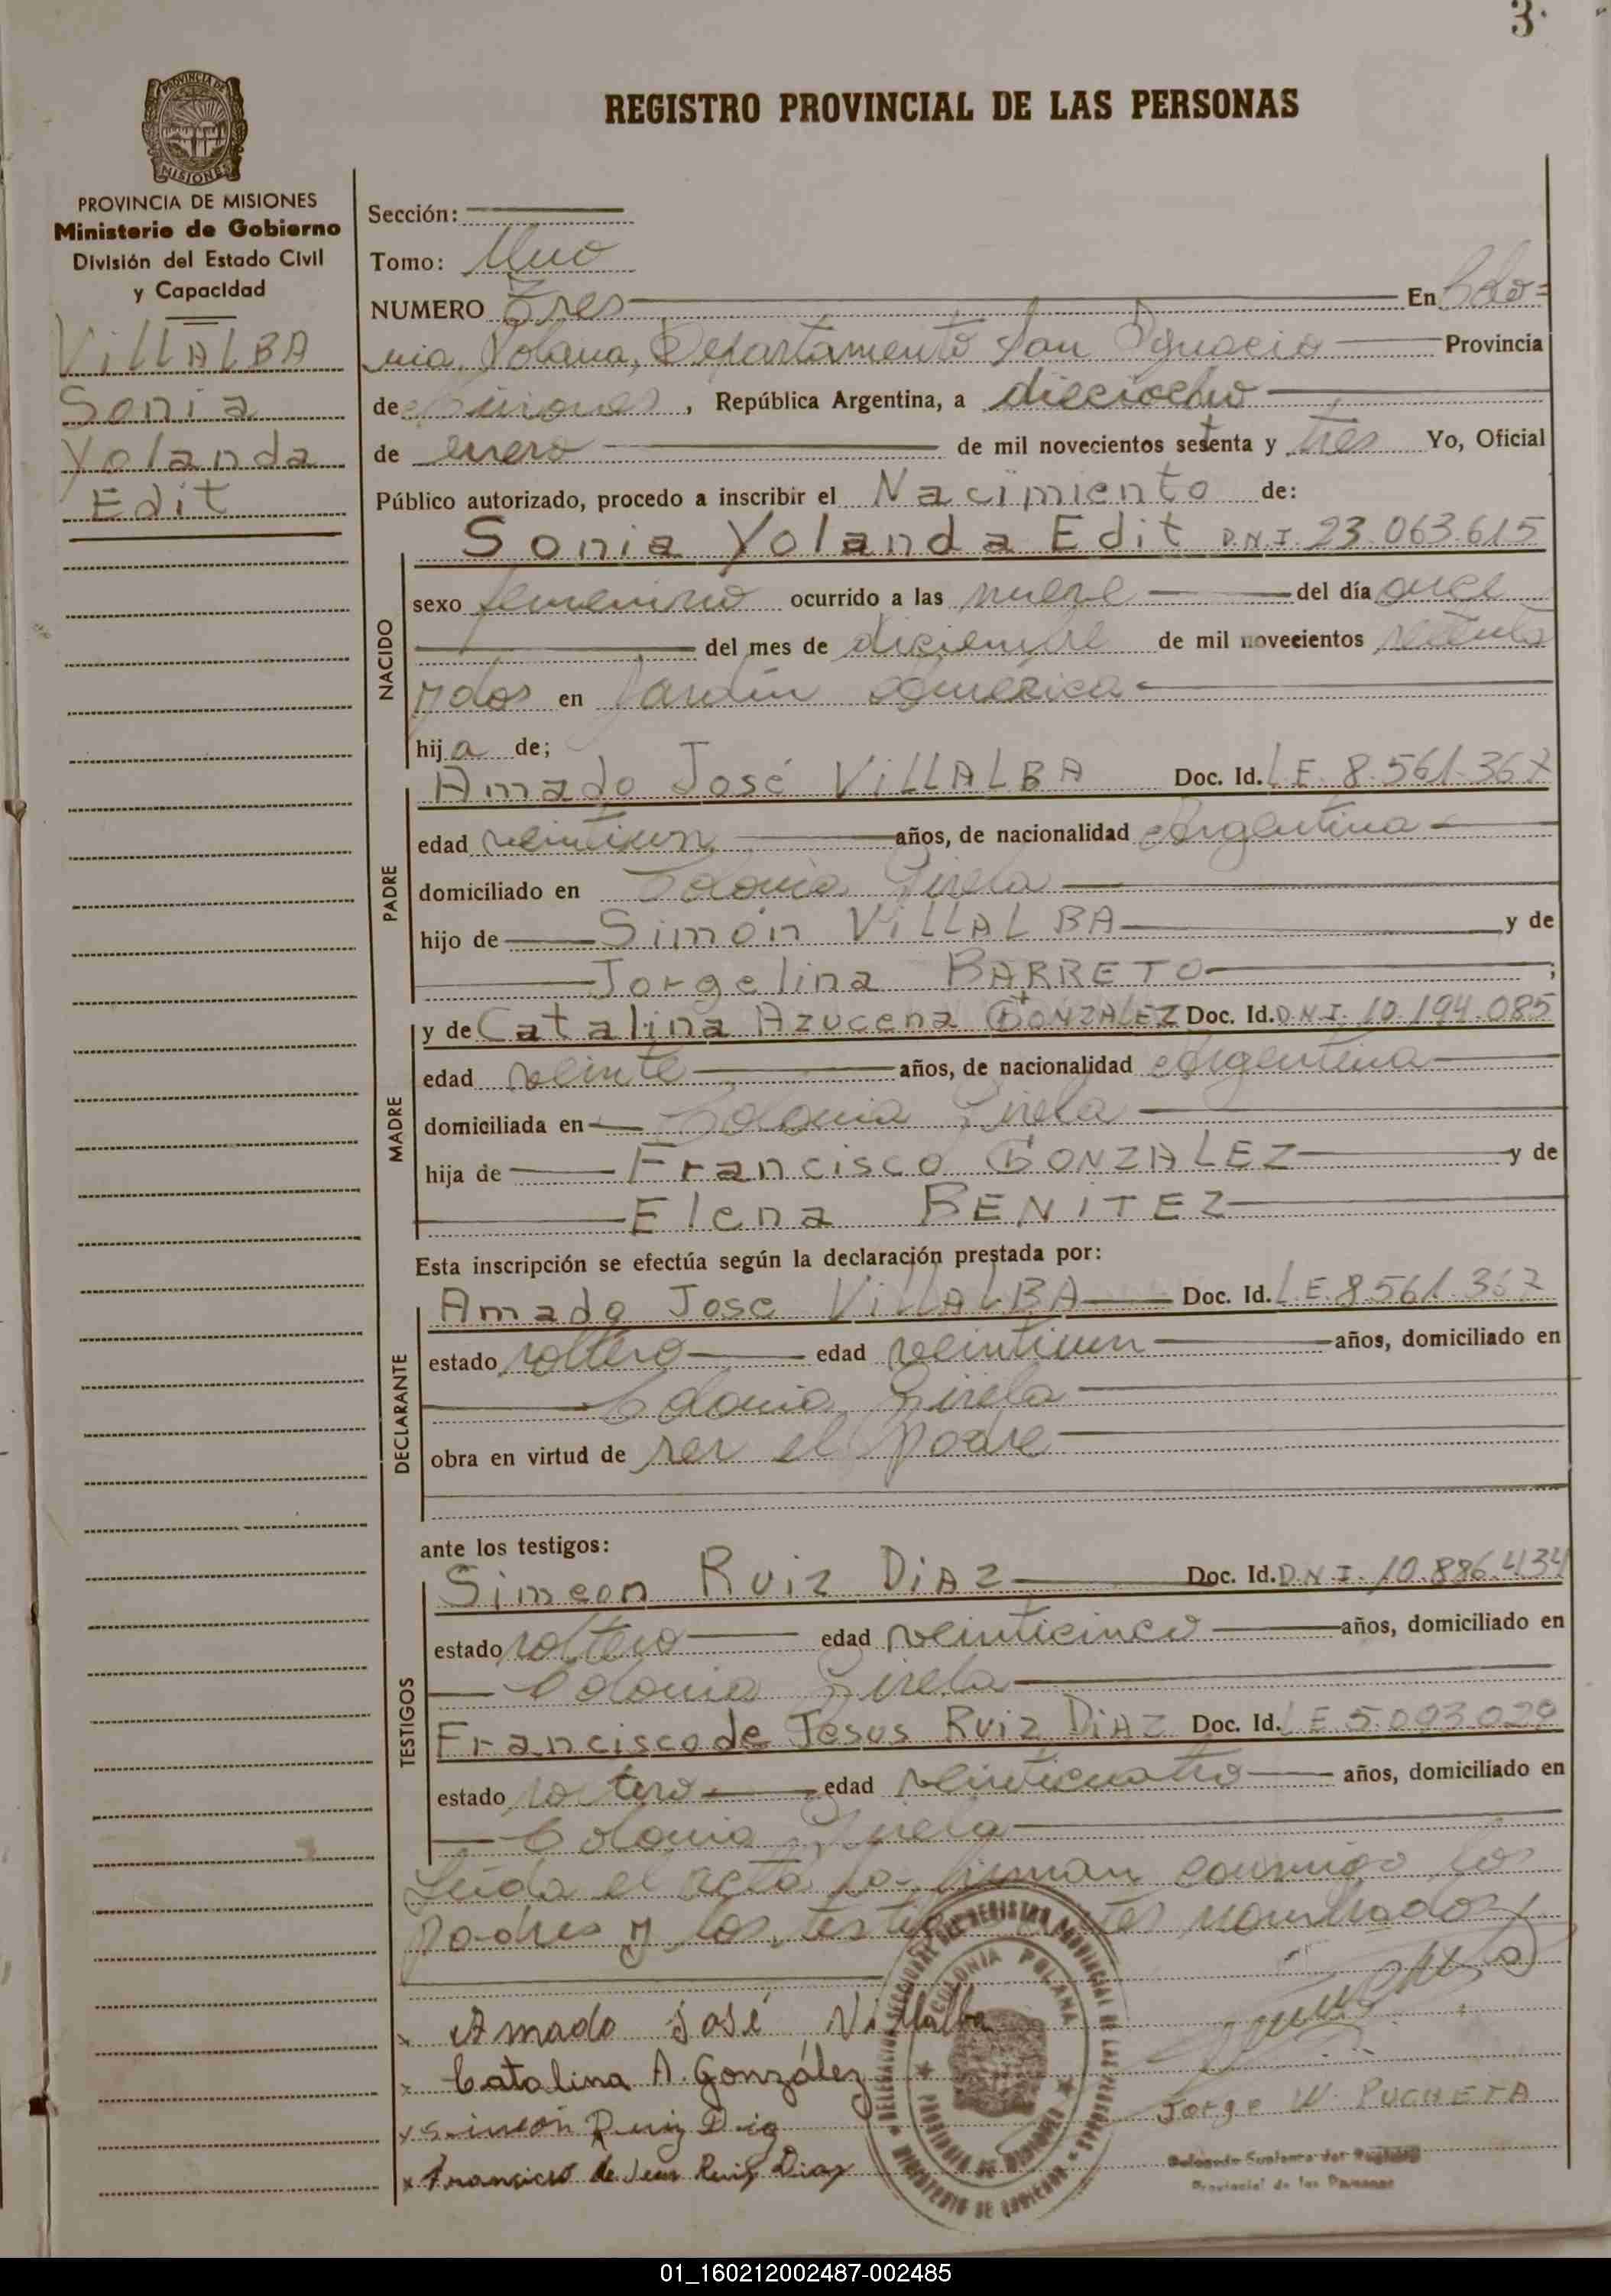 3.
PROVINCIA DE
MISIONES
REGISTRO PROVINCIAL DE LAS PERSONAS
PROVINCIA DE MISIONES
Ministerio de Gobierno
División del Estado Civil
y Capacidad
VillALBA
Sonia
Yolanda
Edit
Sección:
Tomo: Uno
NUMERO Tres En Colo=
nia Polana, Departamento San Ignacio Provincia
de Misiones, República Argentina, a dieciocho
de enero de mil novecientos setenta y tres Yo, Oficial
Público autorizado, procedo a inscribir el Nacimiento de:
Sonia Yolanda Edit D.N.I. 23.063.615
NACIDO
sexo femenino ocurrido a las nueve del día once
del mes de diciembre de mil novecientos setenta
y dos en Jardín America
hija de;
PADRE
Amado José VillALBA Doc. Id. L.E. 8.561.367
edad veintiun años, de nacionalidad Argentina
domiciliado en Colonia
hijo de Simón VillALBA y de
Jorgelina BARRETO ;
MADRE
y de Catalina Azucena GONZALEZ Doc. Id. D.N.I. 10.194.085
edad veinte años, de nacionalidad Argentina
domiciliada en Colonia
hija de Francisco GONZALEZ y de
Elena BENITEZ
Esta inscripción se efectúa según la declaración prestada por:
DECLARANTE
Amado José VillALBA Doc. Id. L.E. 8.561.367
estado soltero edad veintiun años, domiciliado en
Colonia
obra en virtud de ser el padre
ante los testigos:
TESTIGOS
Simeon Ruiz DiAz Doc. Id. D.N.I. 10.886.434
estado soltero edad veinticinco años, domiciliado en
Colonia
Francisco de Jesus Ruiz DiAz Doc. Id. L.E. 5.093.029
estado soltero edad veinticuatro años, domiciliado en
Colonia
Leída el acta la firman conmigo los
padres y los nombrados
Amado José Villalba
Catalina A. González
Simeón Ruiz Diaz
Francisco de Jesus Ruiz Diaz
COLONIA POLANA
PROVINCIA DE MISIONES
MINISTERIO DE GOBIERNO
Jorge W. PUCHETA
Delegado Suplente del Registro
Provincial de las Personas
01_160212002487-002485